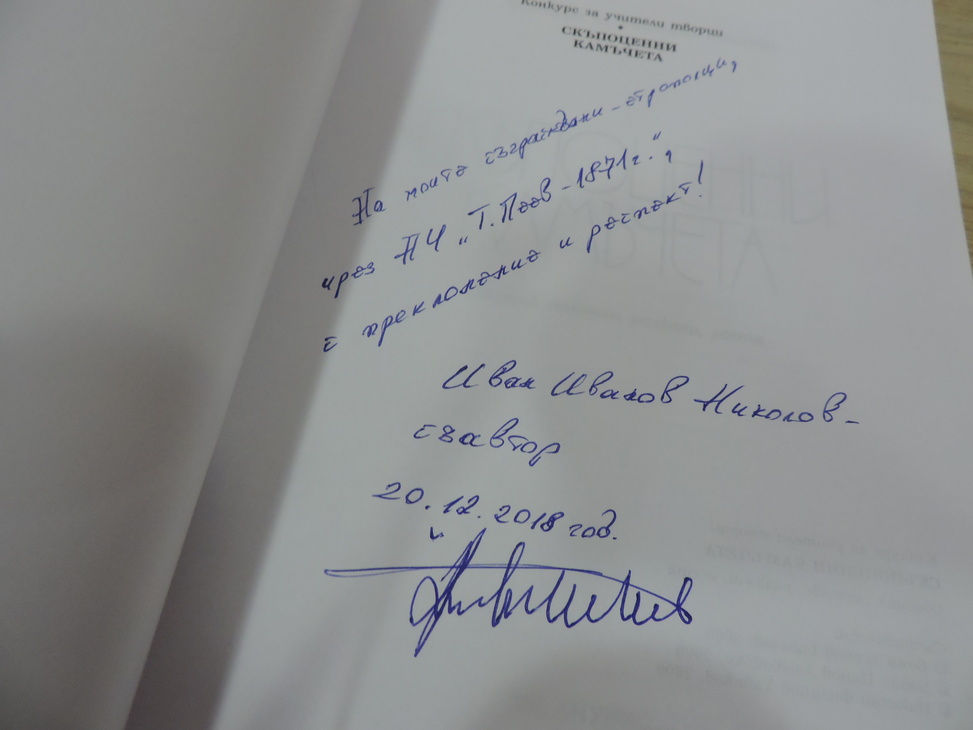 Конкурс за учители творци
*
СКЪПОЦЕННИ
КАМЪЧЕТА
На моите съграждани - етрополци,
чрез НЧ „Т. Пеев - 1871 г.",
с преклонение и респект!
Иван Иванов Николов -
съавтор
20.12.2018 год.